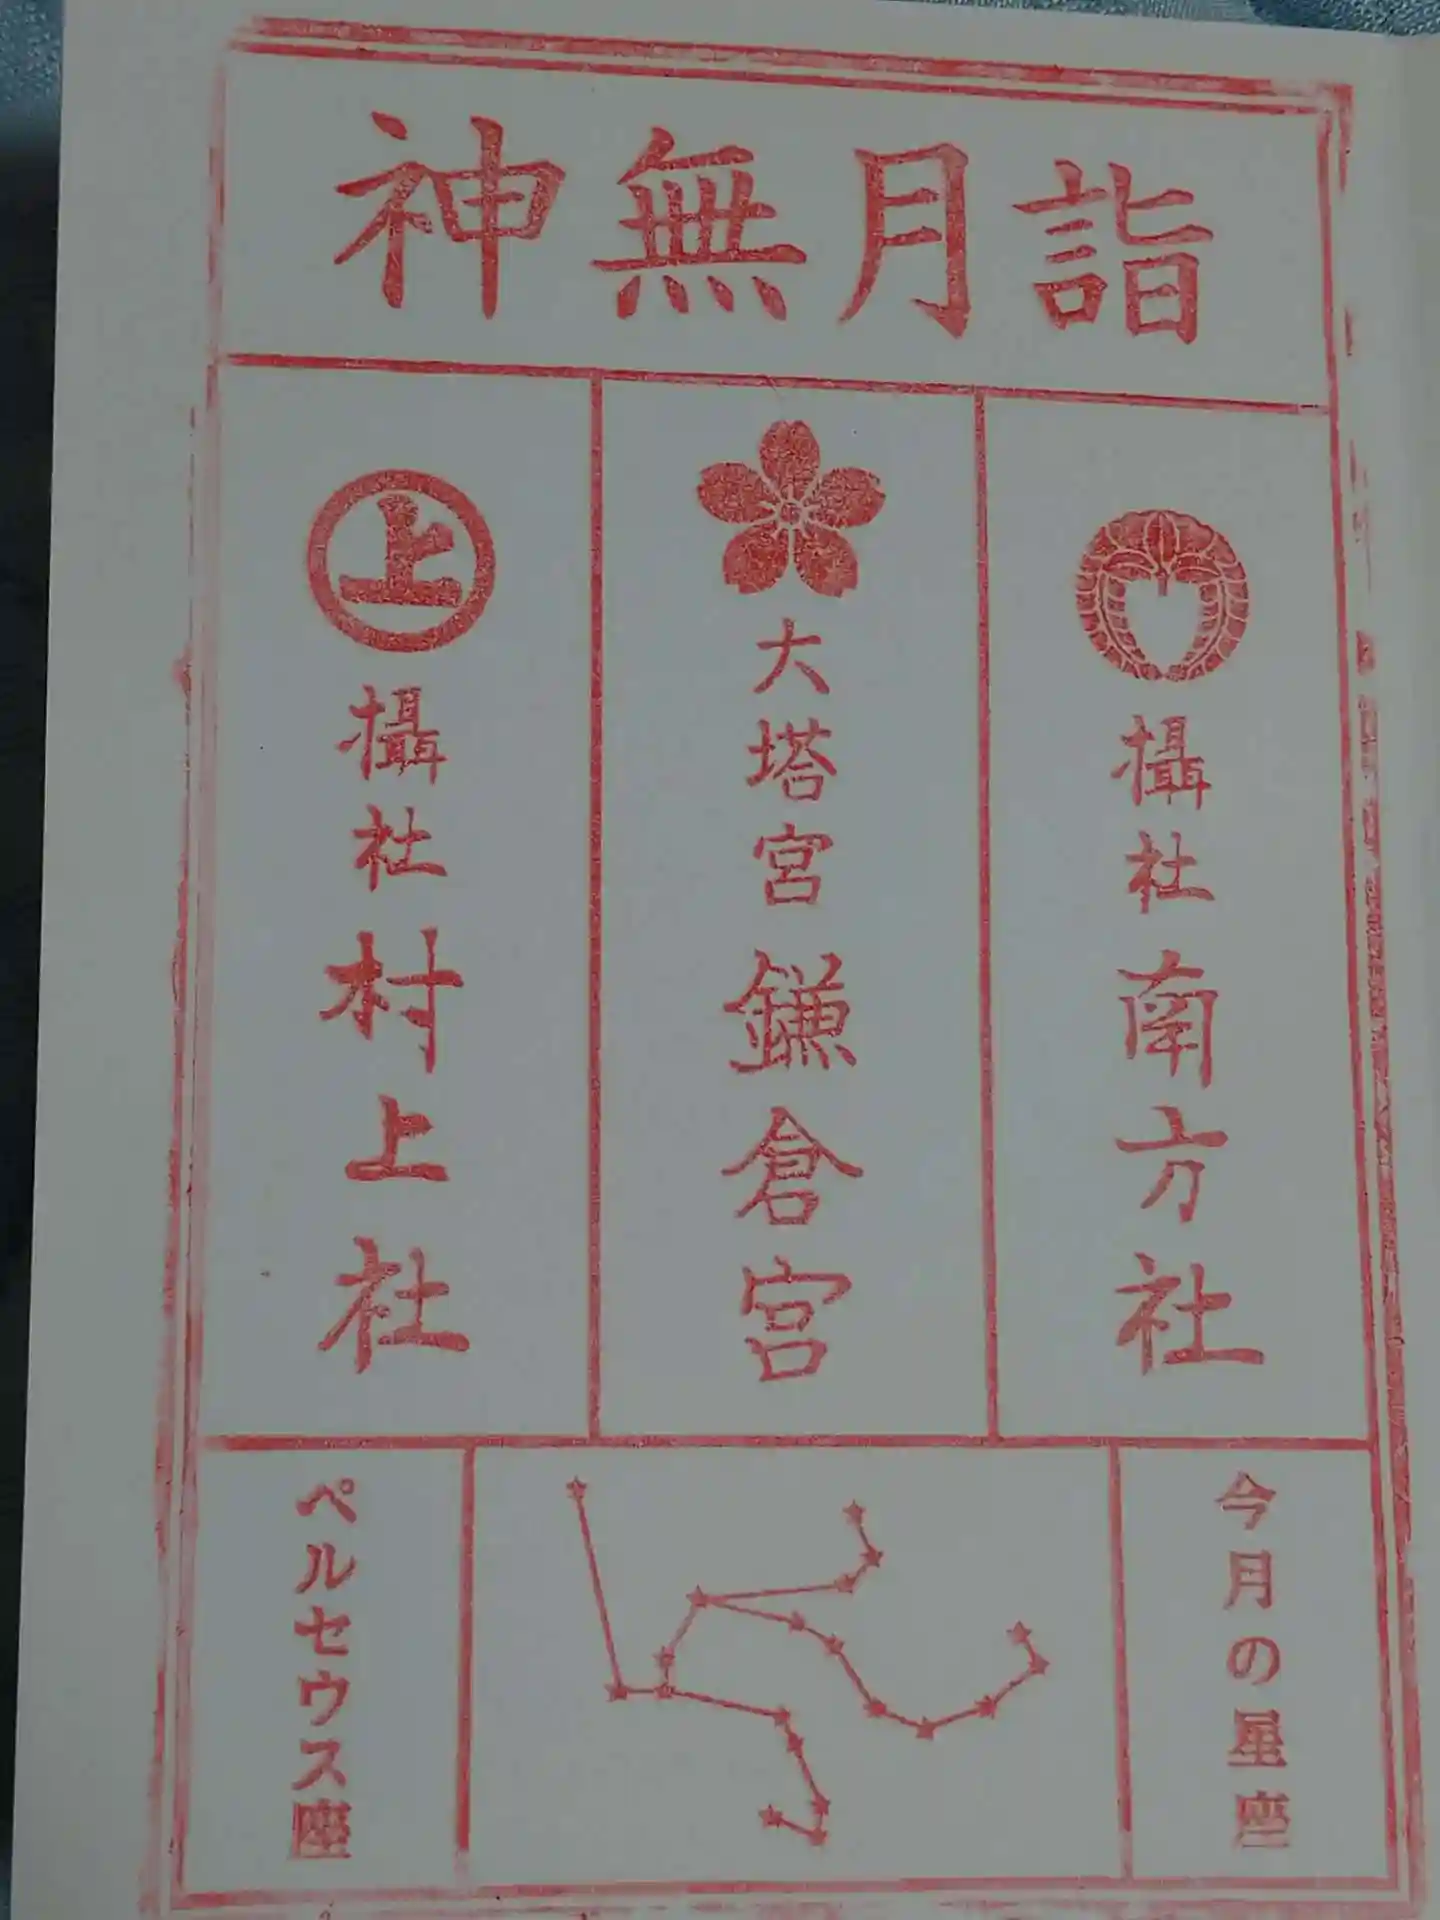 神無月詣
攝社 南方社
大塔宮 鎌倉宮
上
攝社 村上社
今月の星座
ペルセウス座